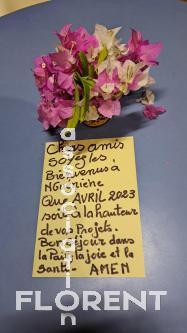 Chers amis
soyez les
Bienvenus à
N'Gor
Que AVRIL 2023
soit à la hauteur
de vos Projets.
Bon séjour dans
la Paix, la joie et la
Santé - AMEN
FLORENT